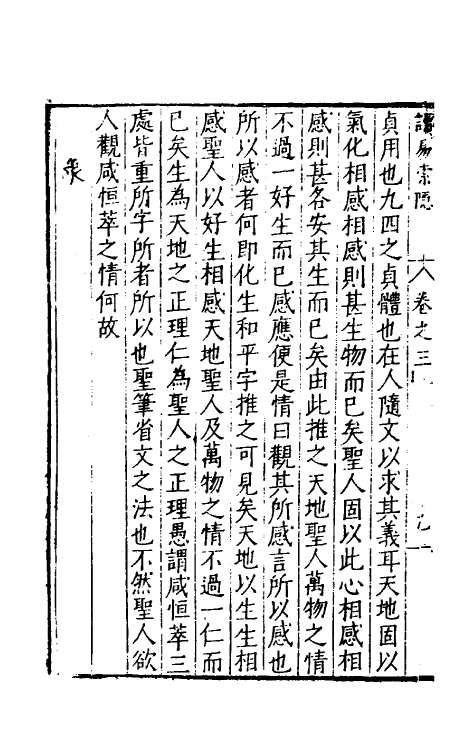 讀易索隱 卷之三
貞用也九四之貞體也在人隨文以求其義耳天地固以
氣化相感相感則甚生物而已矣聖人固以此心相感相
感則甚各安其生而已矣由此推之天地聖人萬物之情
不過一好生而已感應便是情曰觀其所感言所以感也
所以感者何即化生和平字推之可見矣天地以生生相
感聖人以好生相感天地聖人及萬物之情不過一仁而
已矣生為天地之正理仁為聖人之正理愚謂咸恒萃三
處皆重所字所者所以也聖筆省文之法也不然聖人欲
人觀咸恒萃之情何故
象